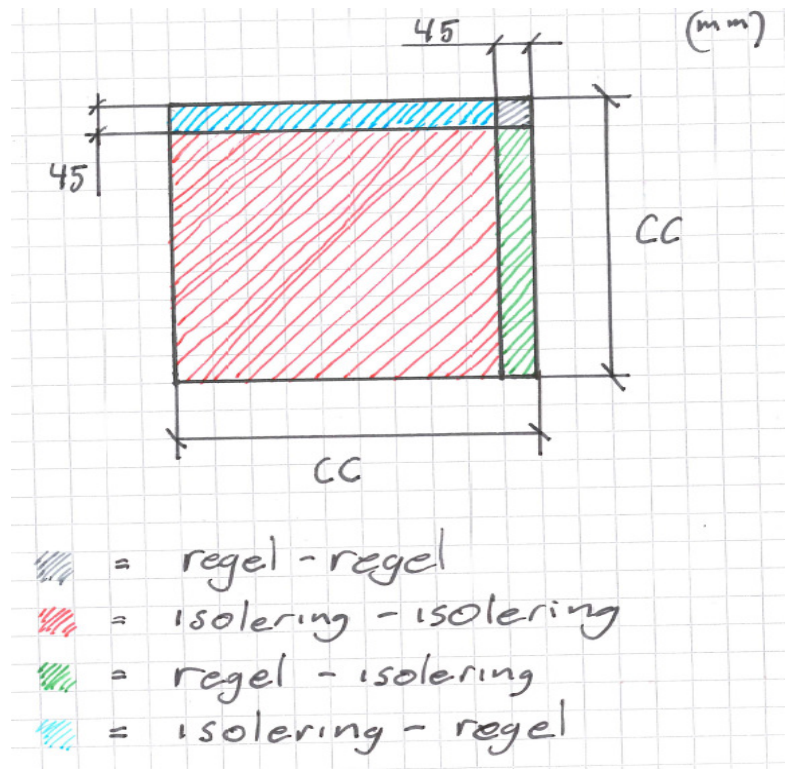 45 (mm)
45
CC
CC
= regel - regel
= isolering - isolering
= regel - isolering
= isolering - regel